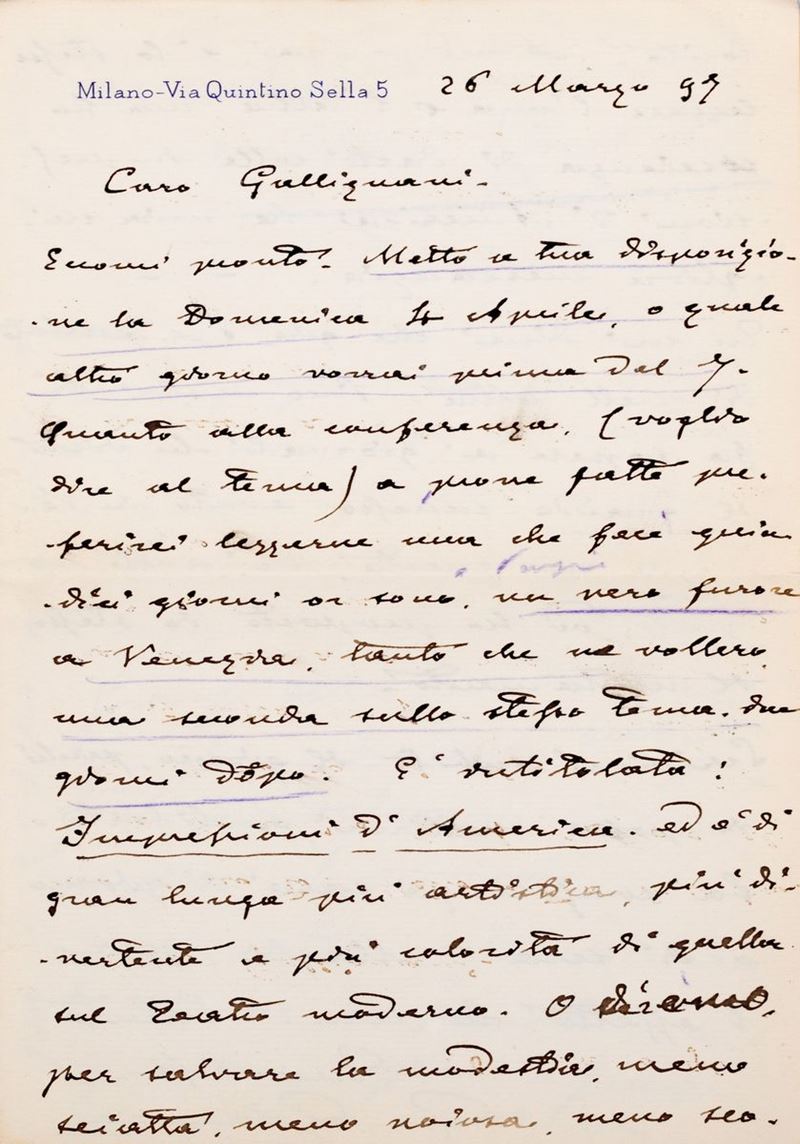 Milano-Via Quintino Sella 5 26 Marzo 97
Caro Gallignani.
Eccomi pronto. Metto a tua disposizio-
-ne la Domenica 4 Aprile, o quale
altro giorno vorrai prima del 7.
Quanto alla conferenza, (voglio
dire al tema) a prove fatte pre-
-ferirei leggerne una che fece quin-
-dici giorni or sono, un vero furore
a Venezia, tanto che ne vollero
una seconda sullo stesso tema, due
giorni dopo. E' intitolata:
Impressioni d'America. ed è di
gran lunga più artistica, più di-
-vertente e più colorita di quella
sul Teatro moderno. O diremo,
per salvare la modestia, meno
sciatta, meno noiosa, meno sco-